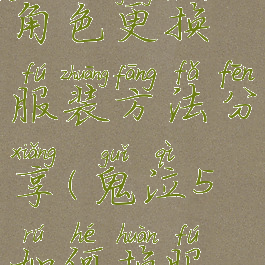 角色更换
fú zhuāng fāng fǎ fēn
服装方法分
xiǎng guǐ qì
享(鬼泣5
rú hé huàn fú
如何换服